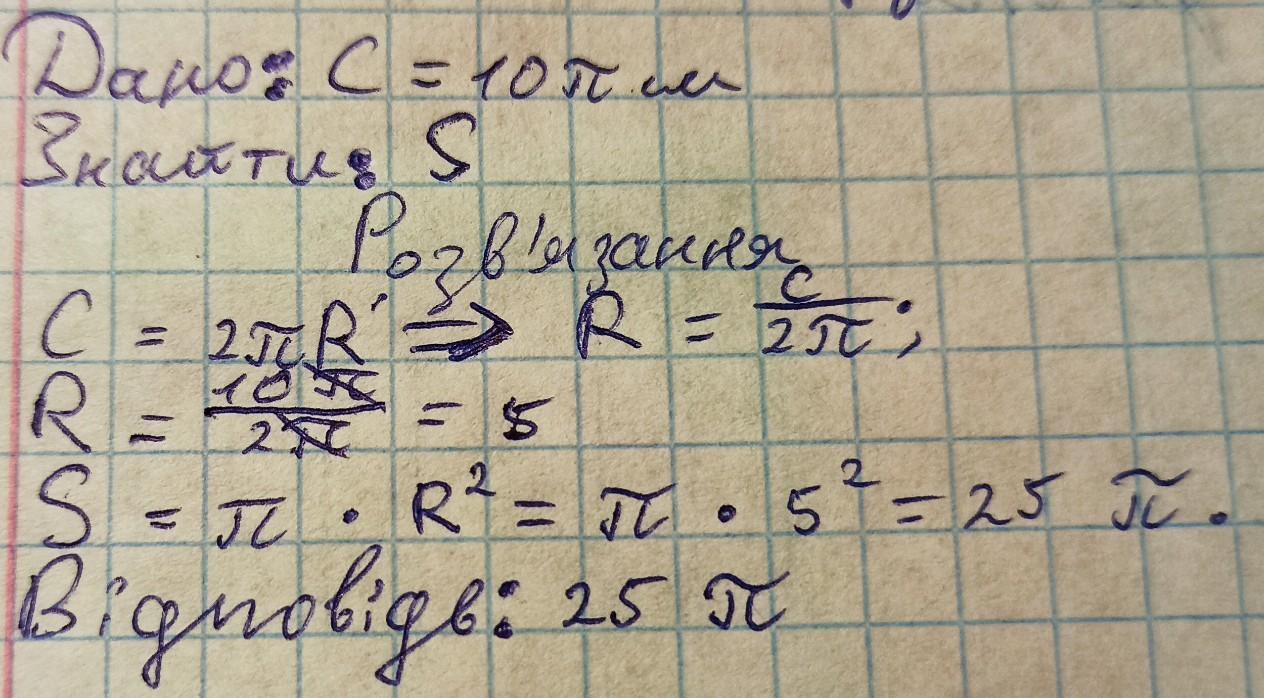 Дано: C = 10π м
Знайти: S
Розв'язання
C = 2πR ⇒ R = C/2π;
R = 10π/2π = 5
S = π · R² = π · 5² = 25 π.
Відповідь: 25 π